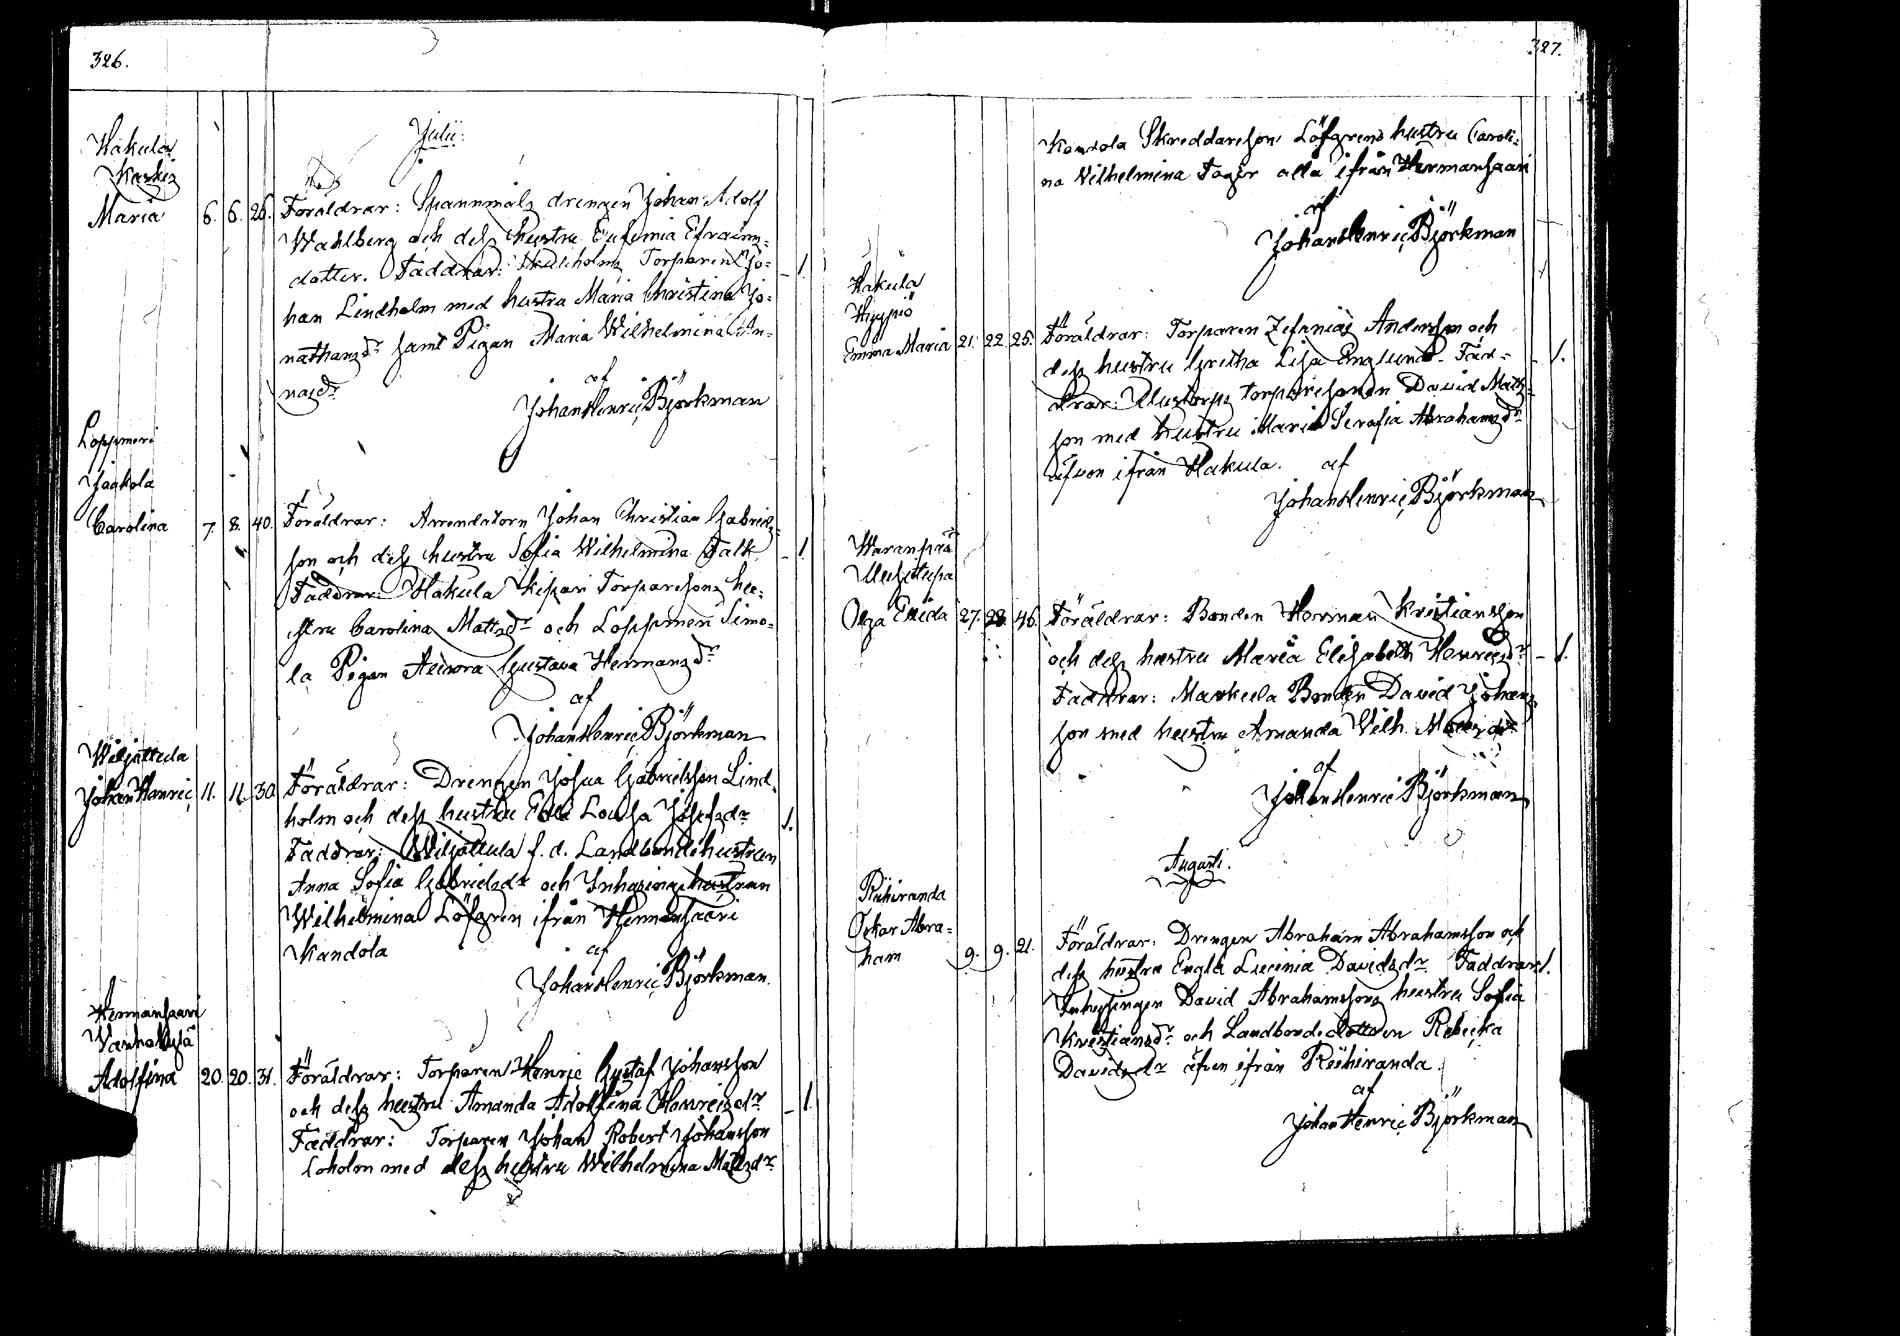 326.
Juli:
Hakula
Maria 6. 6. 26. Föräldrar: Spannmåls drengen Johan Adolf
Wahlberg och dess hustru Eufemia Efraims=
dotter. Faddrar: Torparen Jo=
han Lindholm med hustru Maria Christina Jo=
nathansdr samt Pigan Maria Wilhelmina An=
nasdr
af
Johan Henric Björkman
Loppmeri
Jaakola
Carolina 7. 8. 40. Föräldrar: Arrendatorn Johan Christian Gabriels=
son och dess hustru Sofia Wilhelmina Falk
Faddrar: Hakula Kepari Torparesons hu=
stru Carolina Mattsdr och Loppmeri Simo=
la Pigan Aurora Gustava Hermansdr
af
Johan Henric Björkman
Wiljattula
Johan Henric 11. 11. 30. Föräldrar: Drengen Josua Gabrielsson Lind=
holm och dess hustru Edla Lovisa Josefsdr
Faddrar: Wiljattula f. d. Landbondehustrun
Anna Sofia Gabrielsdr och Inhysingehustrun
Wilhelmina Löfgren ifrån Hermansaari
Kandola
af
Johan Henric Björkman.
Hermansaari
Wanhakylä
Adolfina 20. 20. 31. Föräldrar: Torparen Henric Gustaf Johansson
och dess hustru Amanda Adolfina Henricsdr
Faddrar: Torparen Johan Robert Johansson
Loholm med dess hustru Wilhelmina Mattsdr
327.
Kandola Skreddaresson Löfgrens hustru Caroli=
na Wilhelmina Fager alla ifrån Hermansaari
af
Johan Henric Björkman
Hakula
Hyypiö
Emma Maria 21. 22. 25. Föräldrar: Torparen Zefanias Andersson och
dess hustru Gretha Lisa Englund. Fad=
drar: Torparesonen David Matts=
son med hustru Maria Serafia Abrahamsdr
äfven ifrån Hakula. af
Johan Henric Björkman
Haranpää
Uusitupa
Olga Elida 27. 28. 46. Föräldrar: Bonden Herman Kristiansson
och dess hustru Maria Elisabeth Henricsdr
Faddrar: Markula Bonden David Johans=
son med hustru Amanda Wilh. Mattsdr
af
Johan Henric Björkman
Augusti.
Riihiranda
Oskar Abra=
ham 9. 9. 21. Föräldrar: Drengen Abraham Abrahamsson och
dess hustru Engla Lucinia Davidsdr Faddrar:
Inhysingen David Abrahamssons hustru Sofia
Kristiansdr och Landbondedottern Rebecka
Davidsdr äfven ifrån Riihiranda.
af
Johan Henric Björkman